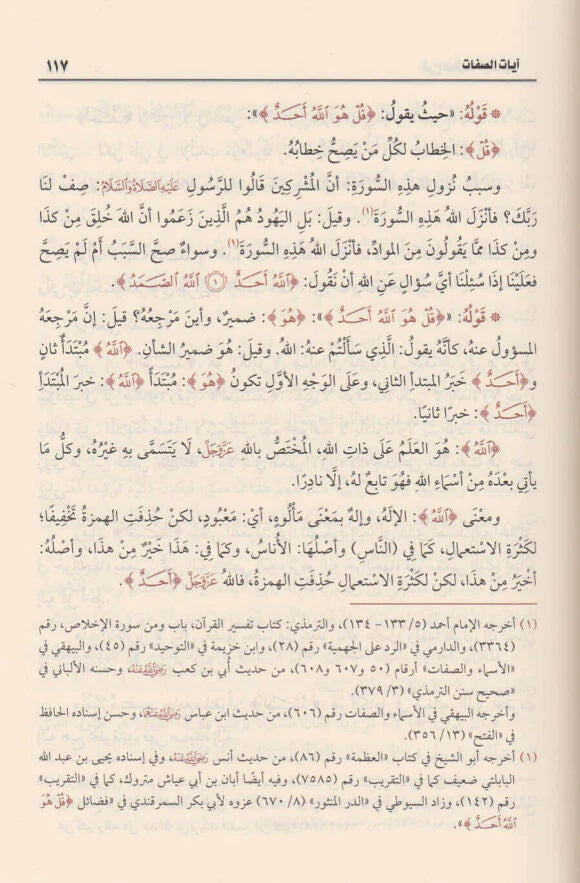 آيات الصفات ١١٧
* قَوْلُهُ: «حيثُ يقولُ: ﴿قُلْ هُوَ ٱللَّهُ أَحَدٌ﴾»:
﴿قُلْ﴾: الخِطابُ لكُلِّ مَنْ يَصِحُّ خِطابُهُ.
وسببُ نُزولِ هذِهِ السُّورَةِ: أنَّ المُشْرِكينَ قالُوا للرَّسُولِ عَلَيْهِ الصَّلَاةُ وَالسَّلَامُ: صِفْ لنَا
رَبَّكَ؟ فأنْزَلَ اللهُ هَذِهِ السُّورَةَ(١). وقيلَ: بَلِ اليَهُودُ هُمُ الَّذينَ زَعَمُوا أنَّ اللهَ خُلِقَ مِنْ كذَا
ومِنْ كذَا ممَّا يَقُولُونَ مِنَ الموادِّ، فأنْزَلَ اللهُ هذِهِ السُّورةَ(١). وسواءٌ صحَّ السَّبَبُ أمْ لَمْ يَصِحَّ
فعلَيْنَا إذَا سُئِلْنَا أيَّ سُؤالٍ عَنِ اللهِ أنْ نَقُولَ: ﴿ٱللَّهُ أَحَدٌ ۝١ ٱللَّهُ ٱلصَّمَدُ﴾.
* قَوْلُهُ: «﴿قُلْ هُوَ ٱللَّهُ أَحَدٌ﴾»: ﴿هُوَ﴾: ضميرٌ، وأينَ مَرْجِعُهُ؟ قيلَ: إنَّ مَرْجِعَهُ
المسؤولُ عنهُ، كأنَّهُ يقولُ: الَّذي سَأَلْتُمْ عنهُ: اللهُ. وقيلَ: هُوَ ضميرُ الشأنِ. ﴿ٱللَّهُ﴾ مُبْتَدَأٌ ثانٍ
و﴿أَحَدٌ﴾ خَبَرُ المبتدأِ الثاني، وعلَى الوَجْهِ الأوَّلِ تكونُ ﴿هُوَ﴾: مُبْتَدَأً ﴿ٱللَّهُ﴾: خبرَ المُبْتَدَأِ
﴿أَحَدٌ﴾: خبرًا ثانيًا.
﴿ٱللَّهُ﴾: هُوَ العلَمُ عَلَى ذاتِ اللهِ، المُخْتَصُّ باللهِ عَزَّوَجَلَّ، لَا يَتَسَمَّى بِهِ غيْرُهُ، وكلُّ مَا
يأتي بعْدَهُ مِنْ أسْماءِ اللهِ فهُوَ تابعٌ لَهُ، إلَّا نادِرًا.
ومعْنَى ﴿ٱللَّهُ﴾: الإلَهُ، وإلهٌ بمَعْنَى مَأْلُوهٍ، أيْ: مَعْبُودٍ، لكنْ حُذِفَتِ الهمزةُ تَخْفِيفًا؛
لكَثْرَةِ الاستعمالِ، كمَا في (النَّاسِ) وأصْلُهَا: الأُناسُ، وكمَا في: هَذَا خَيْرٌ مِنْ هذَا، وأصْلُهُ:
أخْيَرُ مِنْ هذَا، لكنْ لكَثْرةِ الاسْتعمالِ حُذِفَتِ الهمزةُ، فاللهُ عَزَّوَجَلَّ ﴿أَحَدٌ﴾.
(١) أخرجه الإمام أحمد (٥/ ١٣٣ - ١٣٤)، والترمذي: كتاب تفسير القرآن، باب ومن سورة الإخلاص، رقم
(٣٣٦٤)، والدارمي في «الرد على الجهمية» رقم (٢٨)، وابن خزيمة في «التوحيد» رقم (٤٥)، والبيهقي في
«الأسماء والصفات» أرقام (٥٠ و٦٠٧ و٦٠٨)، من حديث أُبي بن كعب رَضِيَ اللَّهُ عَنْهُ، وحسنه الألباني في
«صحيح سنن الترمذي» (٣/ ٣٧٩).
وأخرجه البيهقي في الأسماء والصفات رقم (٦٠٦)، من حديث ابن عباس رَضِيَ اللَّهُ عَنْهُمَا، وحسن إسناده الحافظ
في «الفتح» (١٣/ ٣٥٦).
(١) أخرجه أبو الشيخ في كتاب «العظمة» رقم (٨٦)، من حديث أنس رَضِيَ اللَّهُ عَنْهُ، وفي إسناده يحيى بن عبد الله
البابلتي ضعيف كما في «التقريب» رقم (٧٥٨٥)، وفيه أيضًا أبان بن أبي عياش متروك، كما في «التقريب»
رقم (١٤٢)، وزاد السيوطي في «الدر المنثور» (٨/ ٦٧٠) عزوه لأبي بكر السمرقندي في «فضائل ﴿قُلْ هُوَ
ٱللَّهُ أَحَدٌ﴾».